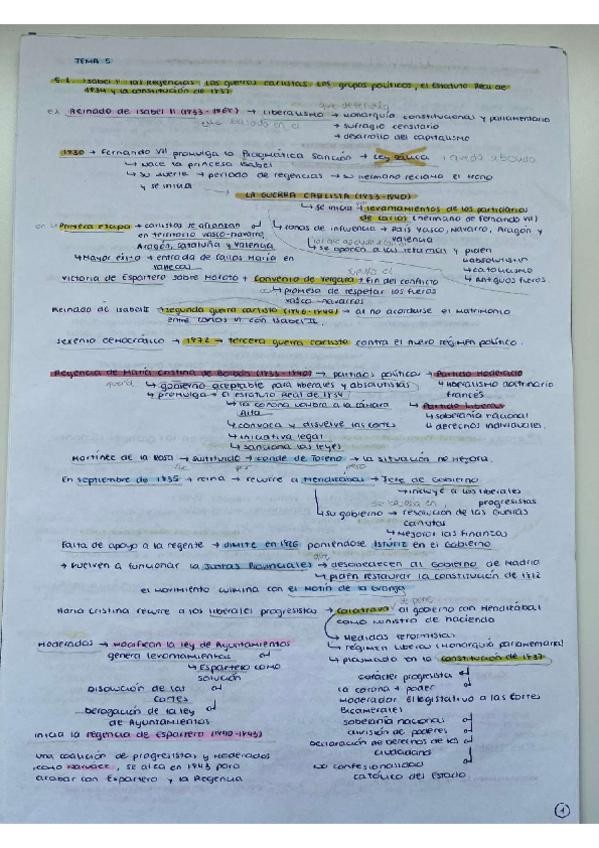 TEMA 5
5.1. Isabel II: las Regencias. Las guerras carlistas. Los grupos políticos, el Estatuto Real de
1834 y la constitución de 1837
que defendía
es Reinado de Isabel II (1833-1868) → Liberalismo → monarquía constitucional y parlamentaria
basado en el → sufragio censitario
→ desarrollo del capitalismo
1830 → Fernando VII promulga la Pragmática Sanción → Ley Sálica
↳ nace la princesa Isabel
↳ su muerte → periodo de regencias → su hermano reclama el trono
y se inicia
LA GUERRA CARLISTA (1833-1840)
↳ se inicia → levantamientos de los partidarios
de Carlos (hermano de Fernando VII)
Primera etapa → carlistas se afianzan
en territorio vasco-navarro,
Aragón, Cataluña y Valencia
↳ zonas de influencia → País Vasco, Navarra, Aragón y
Valencia
↳ se oponen a las reformas y piden
↳ absolutismo
↳ catolicismo
↳ antiguos fueros
↳ Mayor éxito → entrada de Carlos María en
Victoria de Espartero sobre Maroto → Convenio de Vergara → fin del conflicto
↳ promesa de respetar los fueros
vasco-navarros
Reinado de Isabel II → segunda guerra carlista (1846-1849) → al no acordarse el matrimonio
entre Carlos VI con Isabel II.
Sexenio democrático → 1872 → tercera guerra carlista contra el nuevo régimen político.
Regencia de María Cristina de Borbón (1833-1840) → partidos políticos → Partido Moderado
quería ↳ gobierno aceptable para liberales y absolutistas
↳ liberalismo doctrinario
francés
↳ promulga → El estatuto Real de 1834
↳ la corona nombra a la cámara
Alta
↳ convoca y disuelve las cortes
↳ iniciativa legal
↳ sanciona las leyes
↳ Partido Liberal
↳ soberanía nacional
↳ derechos individuales.
Martínez de la Rosa → sustituido → conde de Toreno → la situación no mejora.
por
En septiembre de 1835 → reina → recurre a Mendizábal → Jefe de Gobierno
↳ incluye a los liberales
progresistas
↳ su gobierno → resolución de las guerras
carlistas
↳ Mejorar las finanzas
Falta de apoyo a la regente → dimite en 1836 poniéndose Istúriz en el Gobierno
→ vuelven a funcionar las Juntas Provinciales → desobedecen al Gobierno de Madrid
↳ piden restaurar la constitución de 1812
El movimiento culmina con el Motín de la Granja
María Cristina recurre a los liberales progresistas → Calatrava al gobierno con Mendizábal
como ministro de hacienda
↳ Medidas reformistas
↳ régimen liberal (Monarquía parlamentaria)
↳ plasmado en la constitución de 1837
Moderados → modifican la ley de Ayuntamientos
genera levantamientos
↳ Espartero como
solución
Disolución de las
Cortes
Derogación de la ley
de Ayuntamientos
inicia la regencia de Espartero (1840-1843)
una coalición de progresistas y moderados,
como Narváez, se alza en 1843 para
acabar con Espartero y la Regencia
carácter progresista
la corona → poder
moderador. El legislativo a las Cortes
Bicamerales
soberanía nacional
división de poderes
declaración de derechos de los
ciudadanos
no confesionalidad
católica del Estado
1